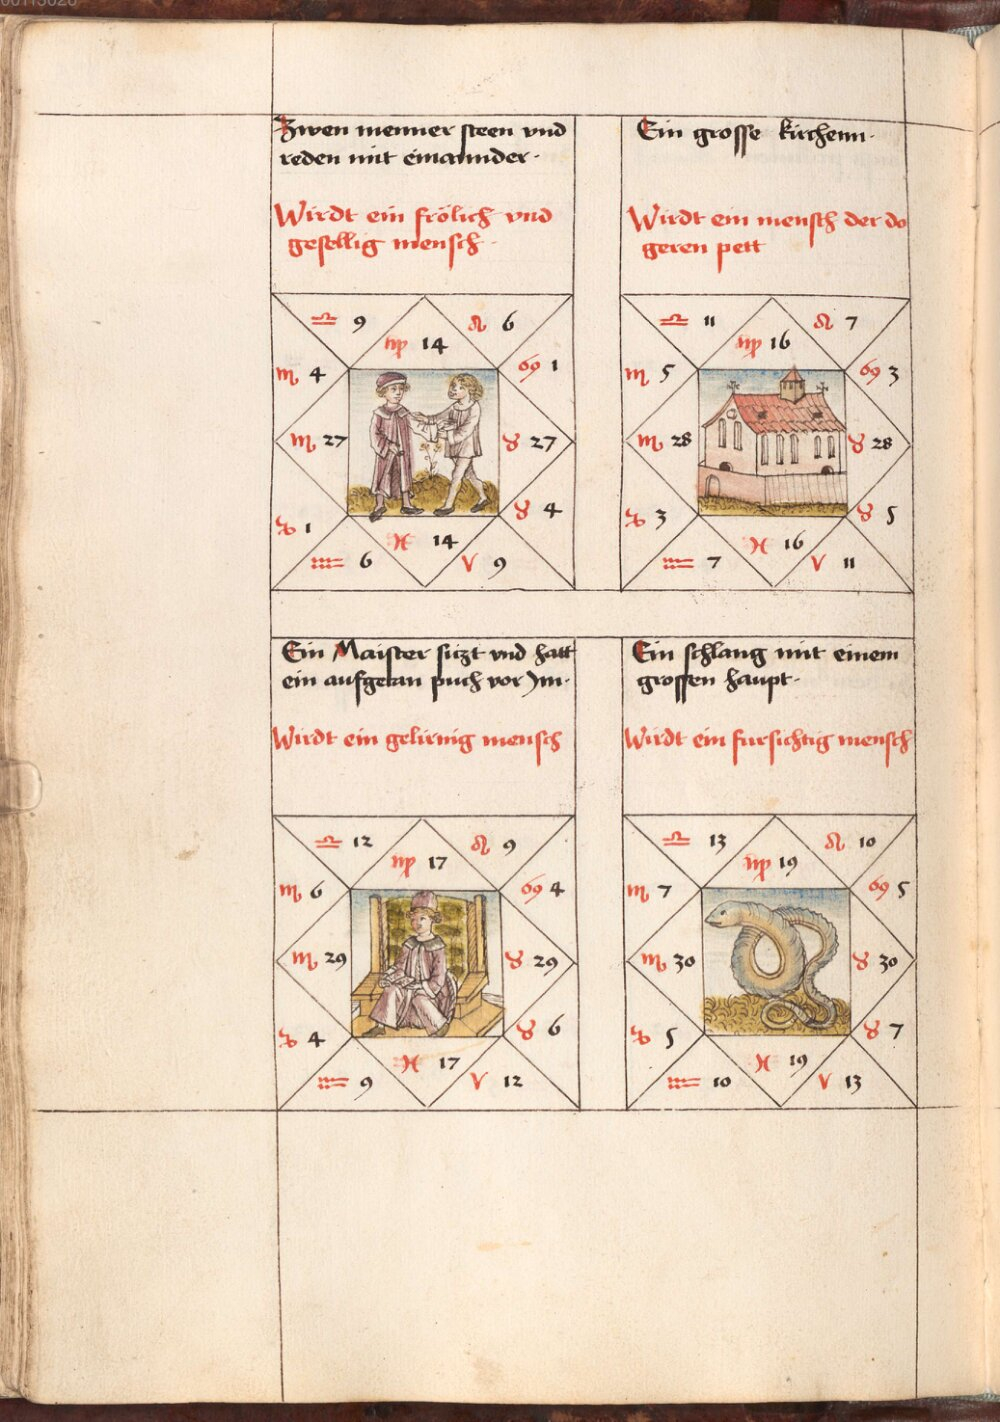 Zwen menner steen vnd
reden mit einannder·
Wirdt ein frölich vnd
gesellig mensch·
♎ 9
♌ 6
♍ 14
♏ 4
♋ 1
♏ 27
♉ 27
♑ 1
♉ 4
♓ 14
♒ 6
♈ 9
Ein grosse kirchenn·
Wirdt ein mensch der do
geren pett
♎ 11
♌ 7
♍ 16
♏ 5
♋ 3
♏ 28
♉ 28
♑ 3
♉ 5
♓ 16
♒ 7
♈ 11
Ein Maister sitzt vnd hatt
ein aufgetan puch vor Jm·
Wirdt ein gelirnig mensch
♎ 12
♌ 9
♍ 17
♏ 6
♋ 4
♏ 29
♉ 29
♑ 4
♉ 6
♓ 17
♒ 9
♈ 12
Ein schlang mit einem
grossen haupt·
Wirdt ein fursichtig mensch
♎ 13
♌ 10
♍ 19
♏ 7
♋ 5
♏ 30
♉ 30
♑ 5
♉ 7
♓ 19
♒ 10
♈ 13